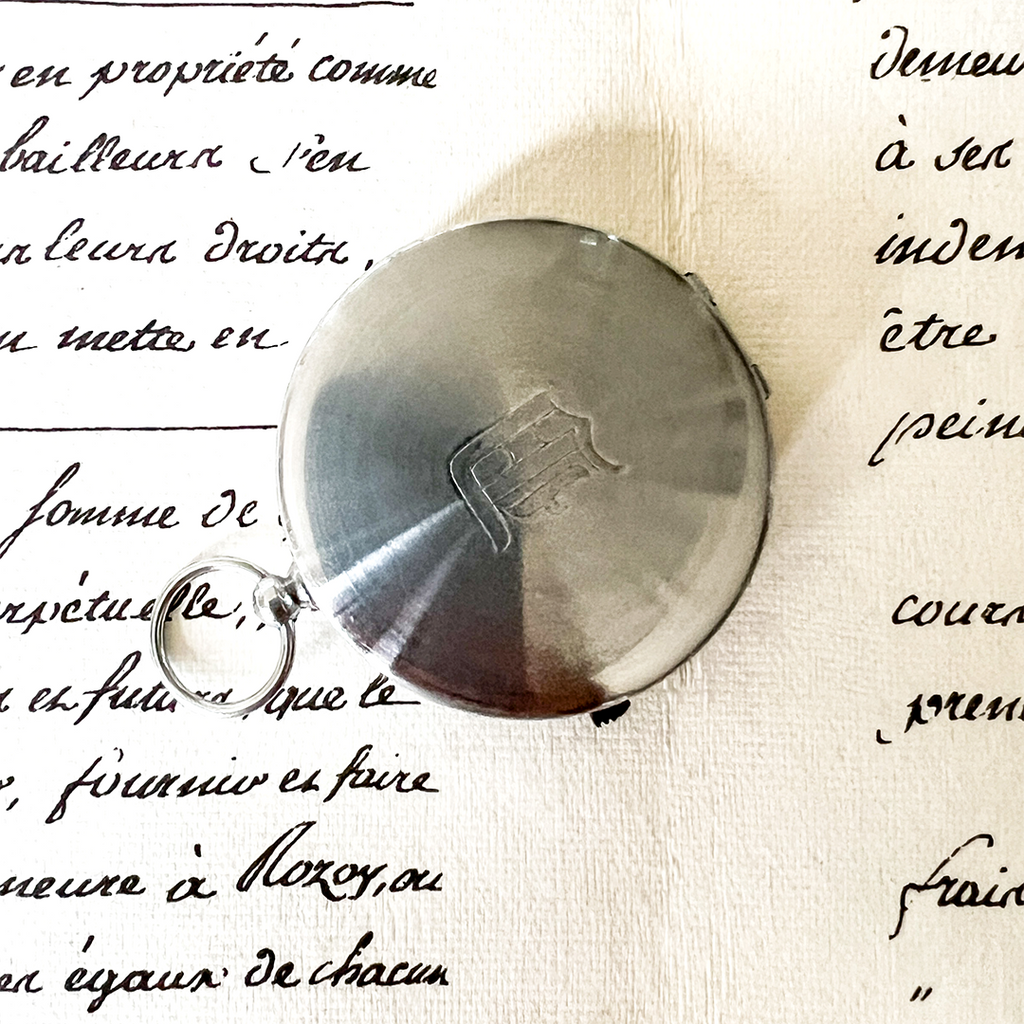 en propriété comme
bailleurs s'en
leurs droits,
mette en
somme de
rpétuelle,
et futurs que le
fournir et faire
meure à Rozoy, ou
égaux de chacun
demeu
à ses
indem
être
peine
cours
pren
frais
"